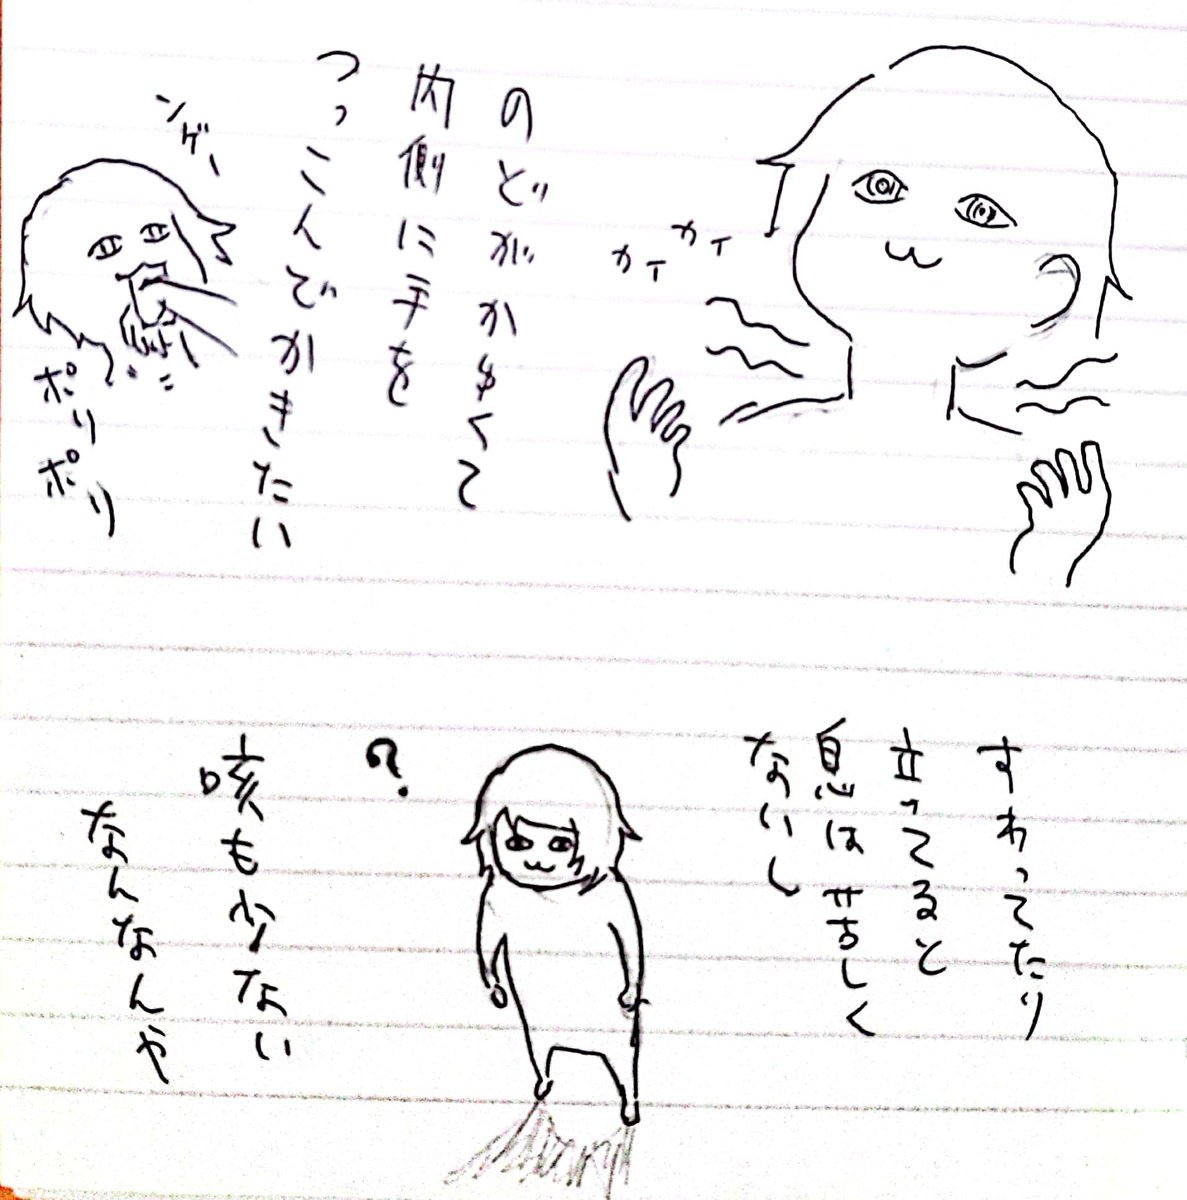 カイ
カイ
のどがかゆくて
内側に手を
つっこんでかきたい
ンゲー
ポリ
ポリ
すわってたり
立ってると
息は苦しく
ないし
?
咳も少ない
なんなんや